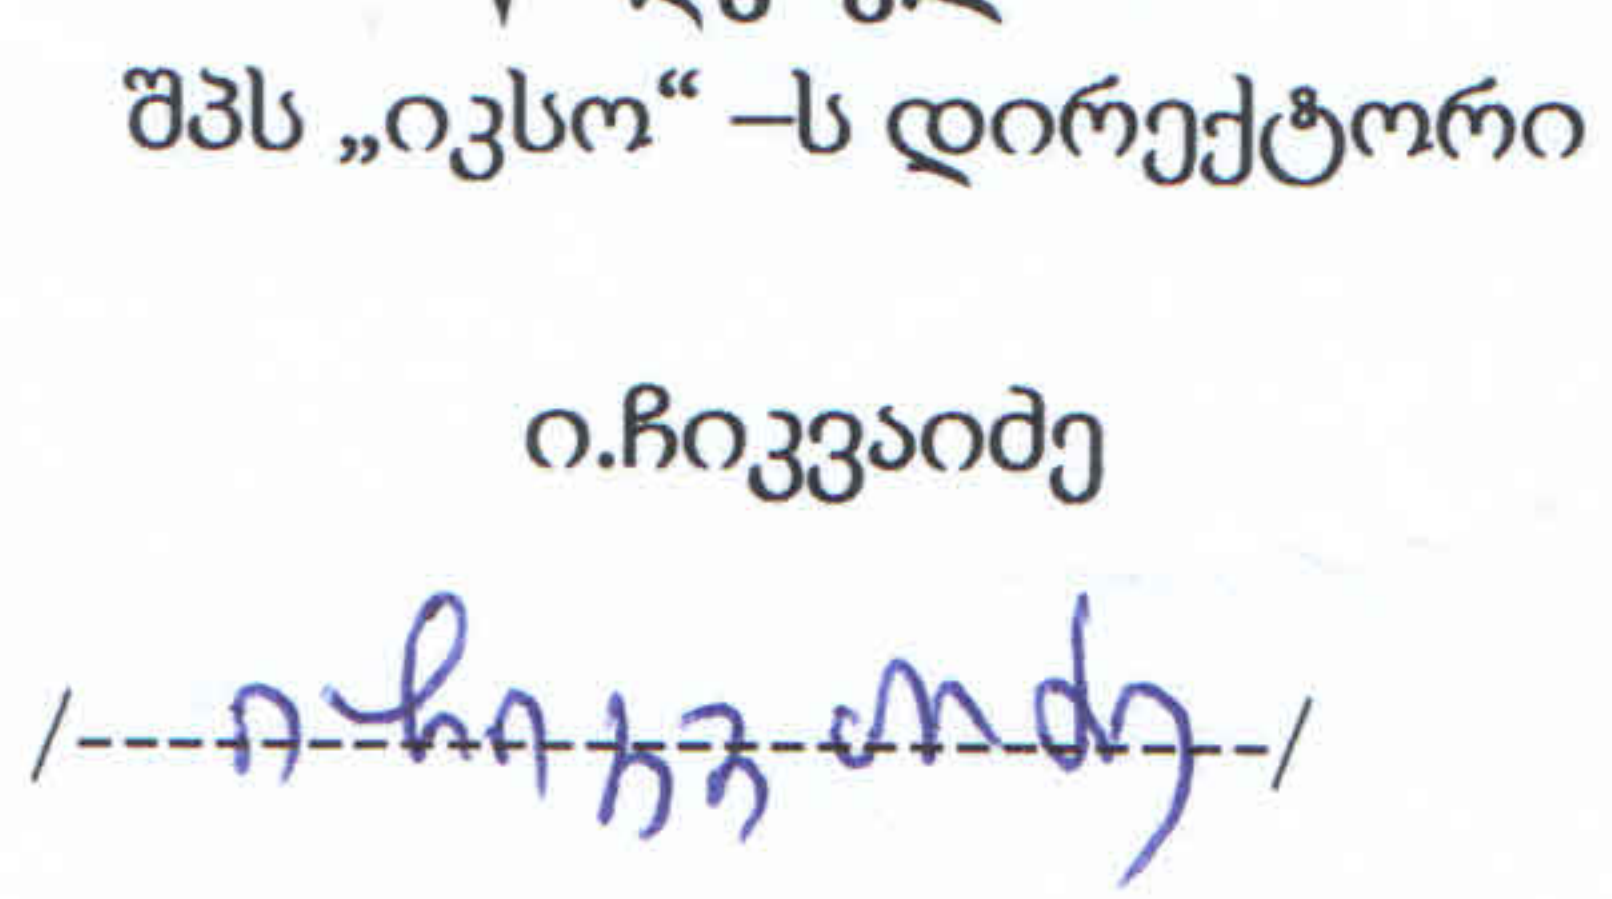 შპს „იკსო“ –ს დირექტორი
ი.ჩიკვაიძე
/ ი ჩიკვაიძე /